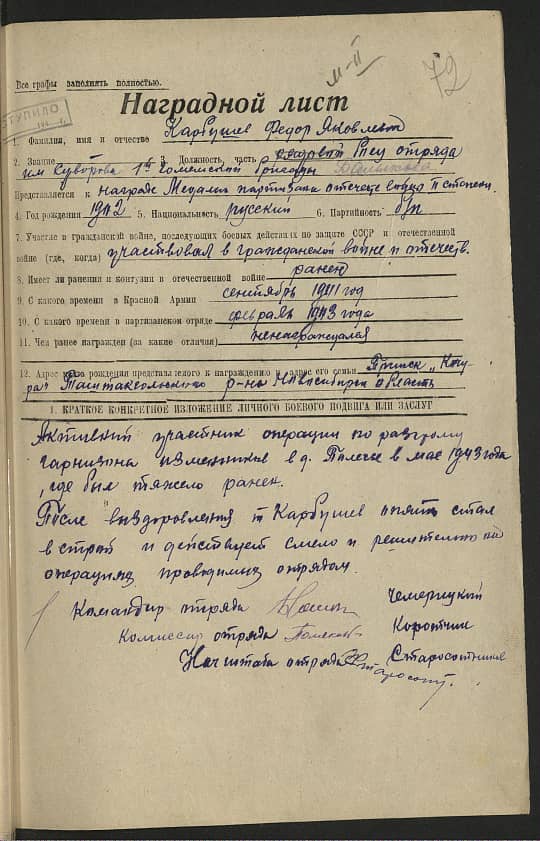 М-II
72
Все графы заполнять полностью.
СТУПИЛО
Наградной лист
1. Фамилия, имя и отчество Карбушев Федор Яковлевич
2. Звание 3. Должность, часть рядовой отряда
им Суворова 1й гомельской бригады
Представляется к награде Медаль партизана отечеств войны II степени
4. Год рождения 1912 5. Национальность русский 6. Партийность б/п
7. Участие в гражданской войне, последующих боевых действиях по защите СССР и отечественной
войне (где, когда) участвовал в гражданской войне и отечеств.
8. Имеет ли ранения и контузии в отечественной войне ранен
9. С какого времени в Красной Армии сентябрь 1941 год
10. С какого времени в партизанском отряде февраль 1943 года
11. Чем ранее награжден (за какие отличия) ненаграждался
12. Адрес места рождения представляемого к награждению и адрес его семьи
Таштагольского р-на Новосибирск область
I. КРАТКОЕ КОНКРЕТНОЕ ИЗЛОЖЕНИЕ ЛИЧНОГО БОЕВОГО ПОДВИГА ИЛИ ЗАСЛУГ
Активный участник операции по разгрому
гарнизона изменников в д. в мае 1943 года
, где был тяжело ранен.
После выздоровления т Карбушев опять стал
в строй и действует смело и решительно на
операциях проводимых отрядом.
Командир отряда Чемерицкий
Комиссар отряда Короткин
Нач штаба отряда